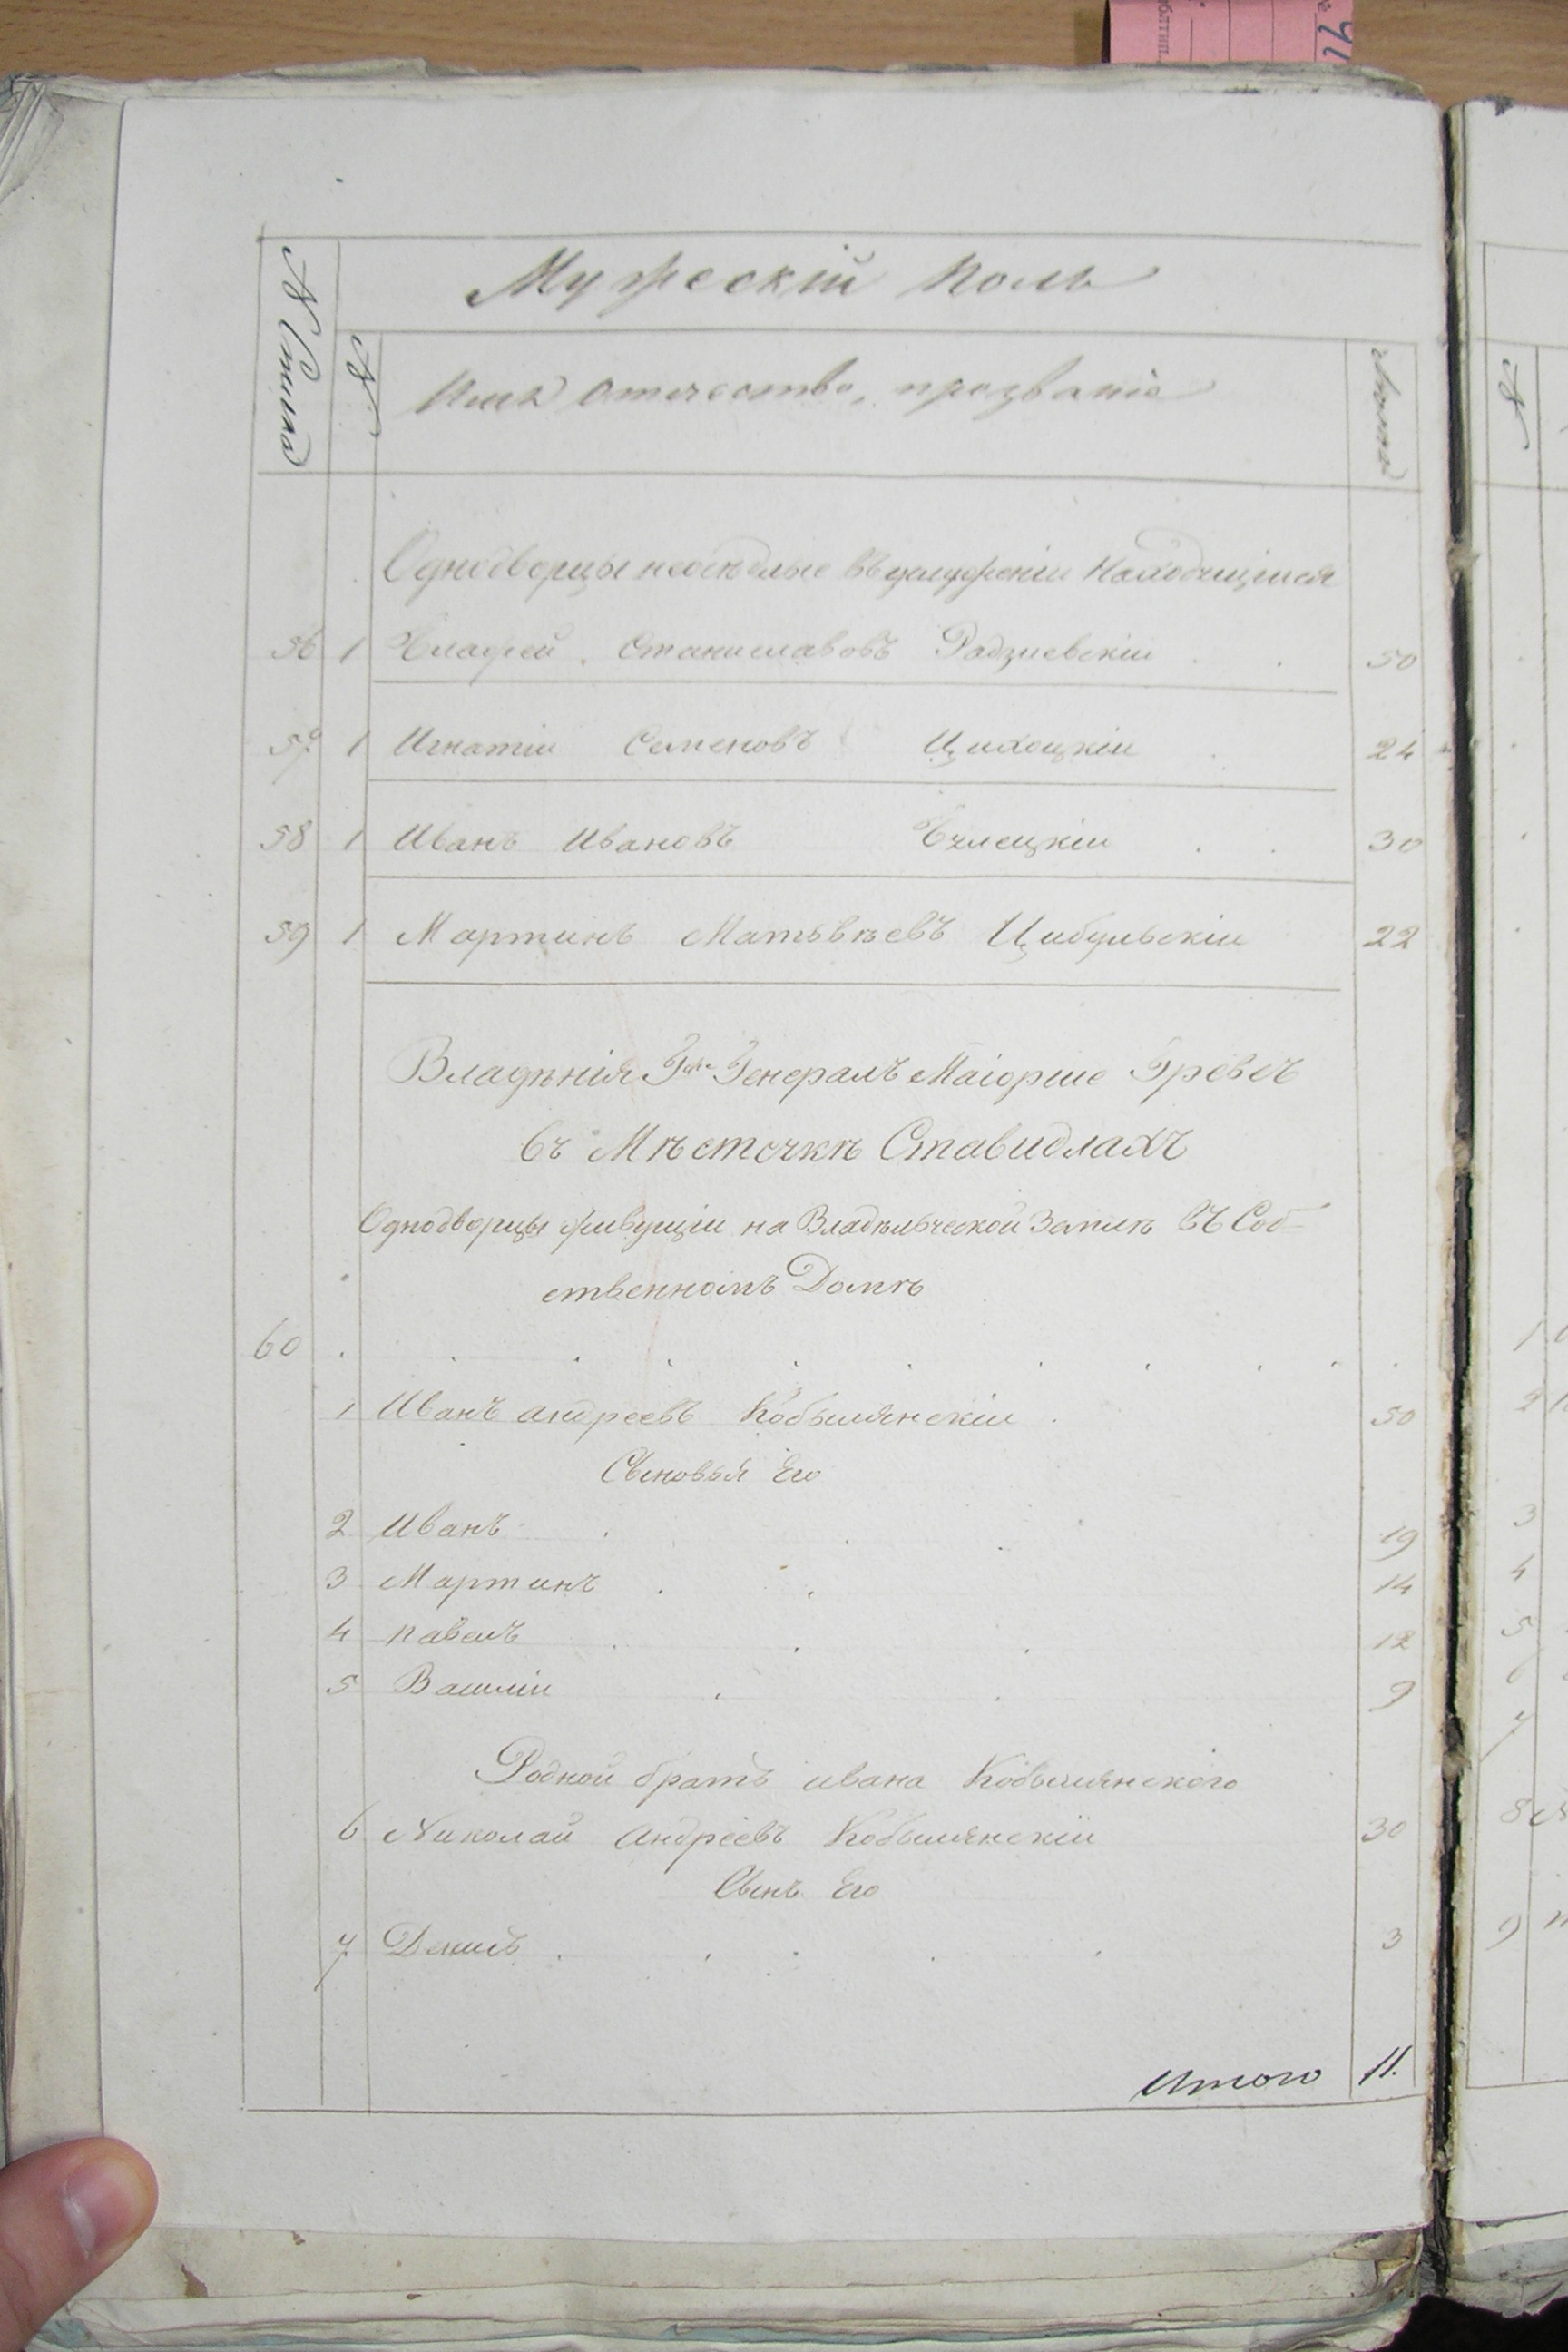 Мужескій Полъ
№ Семьи
№
Имя Отечество, прозваніе
Лета
Однодворцы неосѣдлые въ услуженіи Находящіися
56 1 Станиславовъ Радзиевскіи 50
57 1 Игнатіи Семеновъ Цихоцкіи 24
58 1 Иванъ Ивановъ 30
59 1 Мартинъ Матьвѣевъ Цибульскіи 22
Владѣнія Гжи Генералъ Маіорше Гревсъ
въ Мѣсточкѣ Ставидлахъ
Однодворцы живущіи на Владѣльческой Землѣ въ Соб-
ственномъ Домѣ
60
1 Иванъ Андреевъ Кобылянскіи 50
Сыновья Его
2 Иванъ 19
3 Мартинъ 14
4 павелъ 12
5 Василіи 9
Родной братъ ивана Кобылянского
6 Николай Андреевъ Кобылянскіи 30
Сынъ Его
7 Денисъ 3
Итого 11.
№
1
2
3
4
5
6
7
8
9